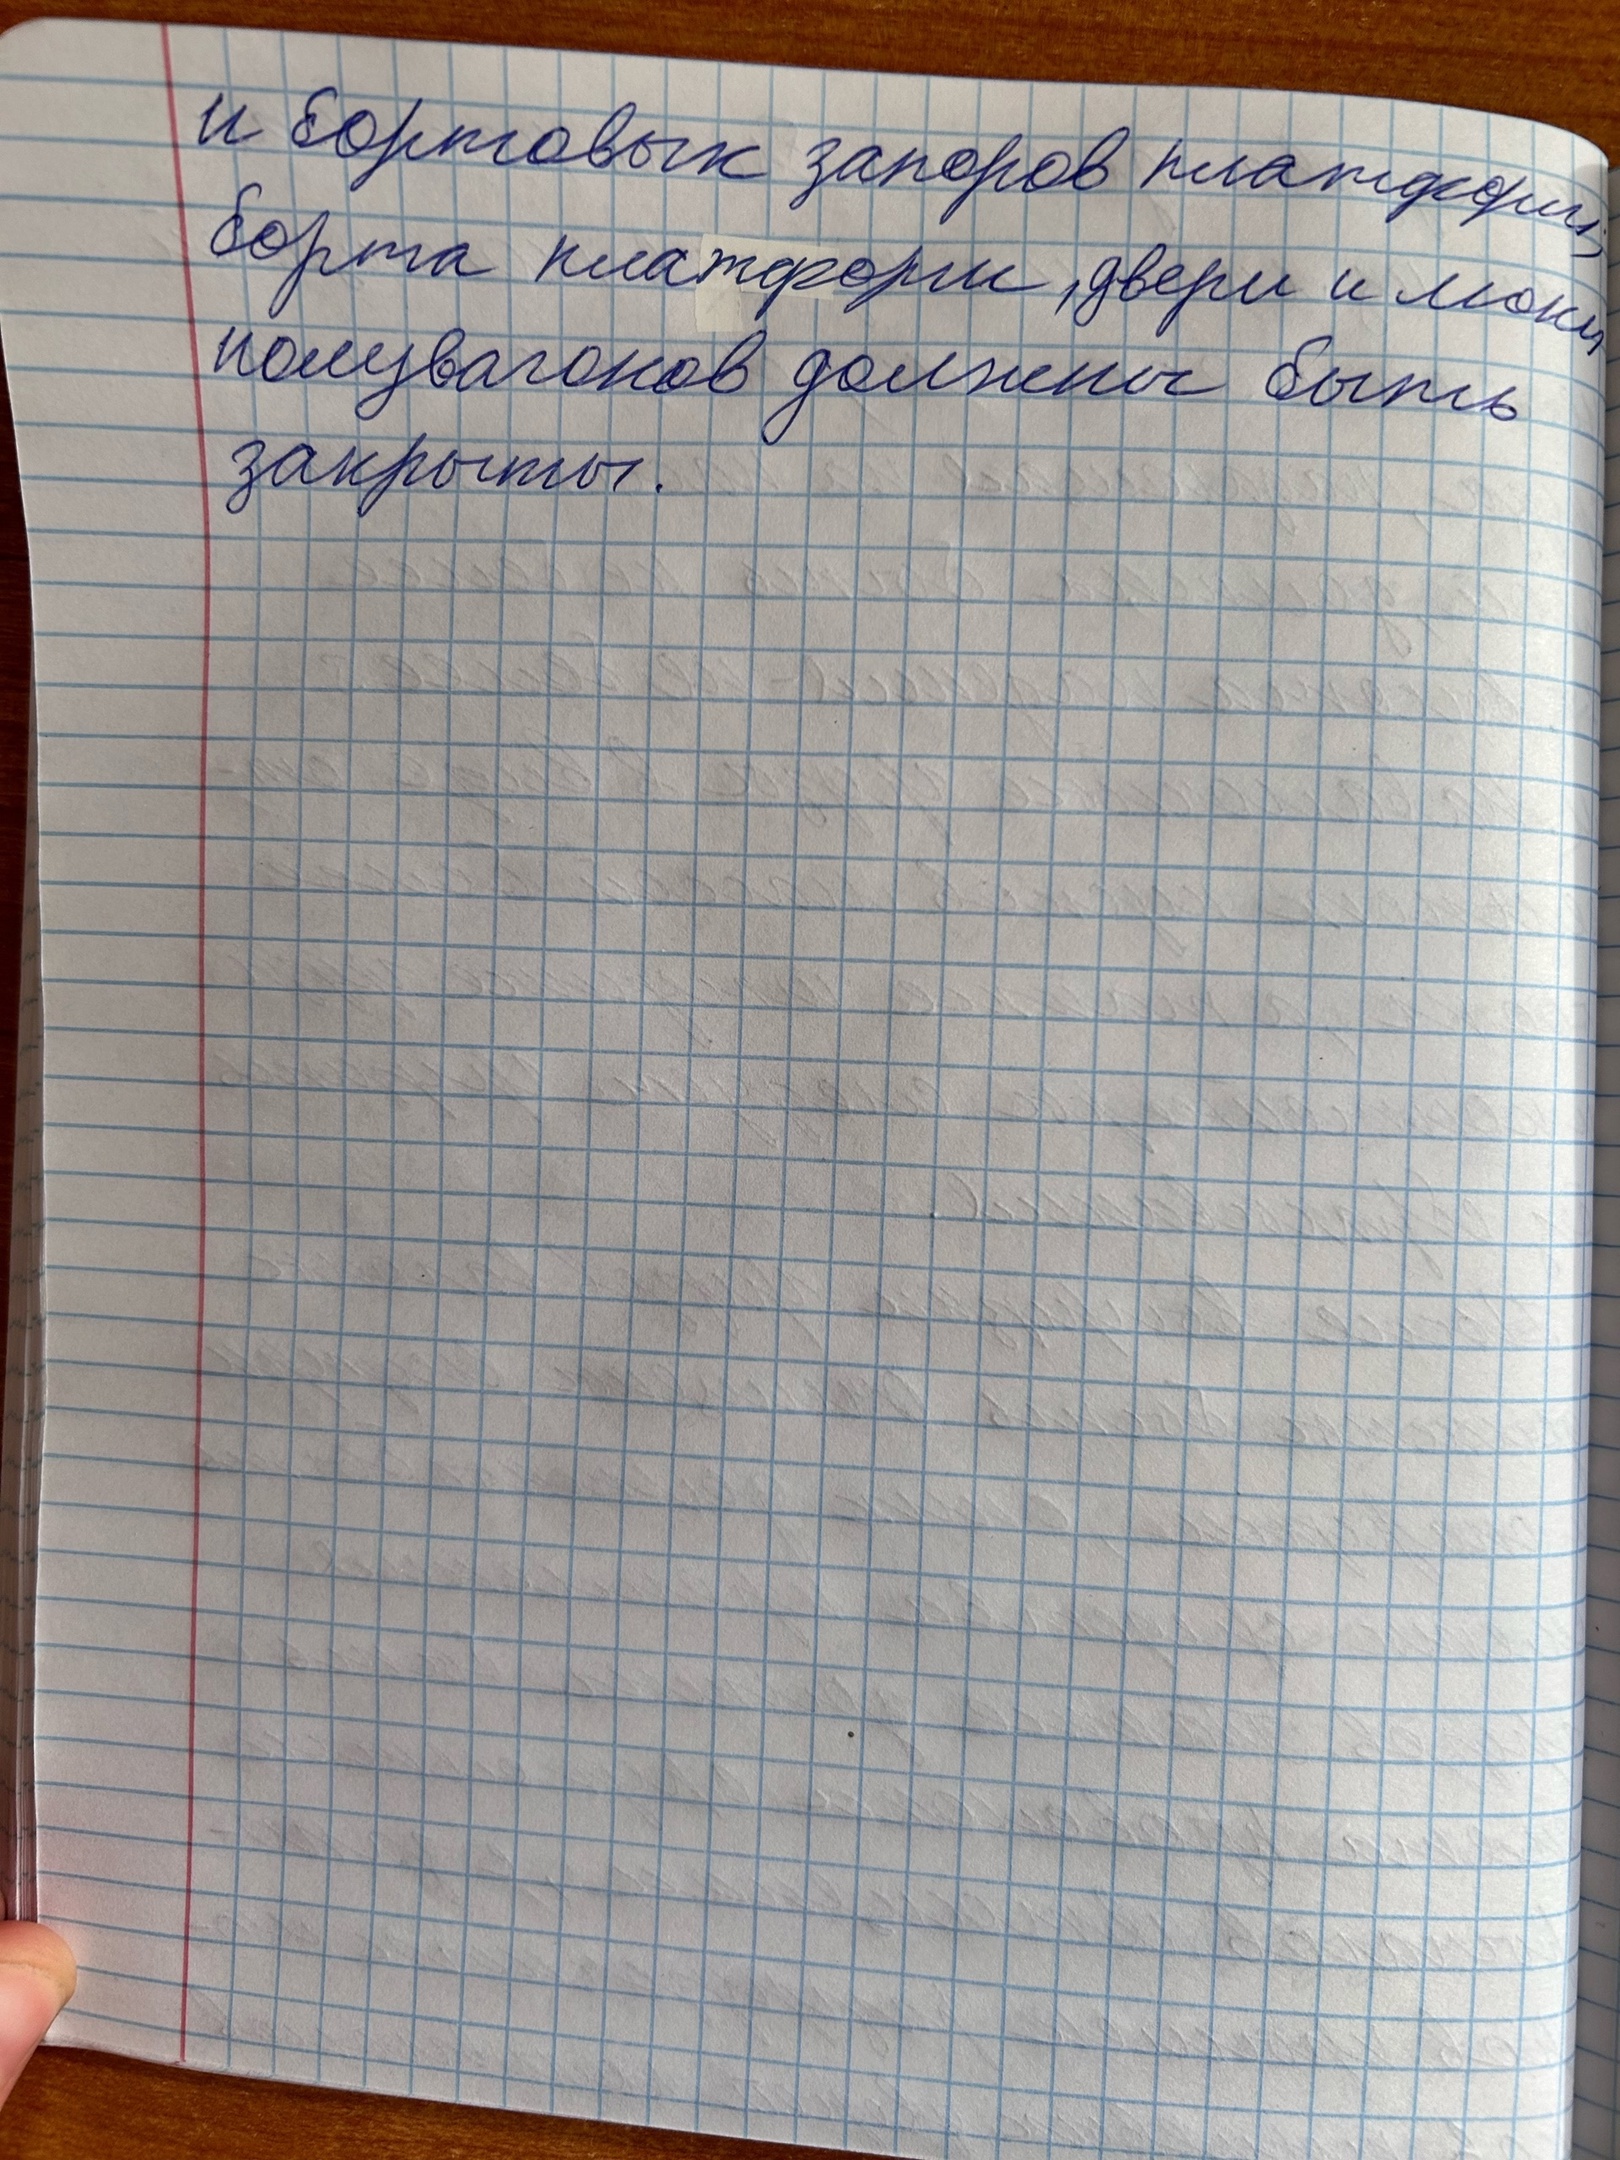 и бортовых запоров платформ,
борта платформ, двери и люки
полувагонов должны быть
закрыты.